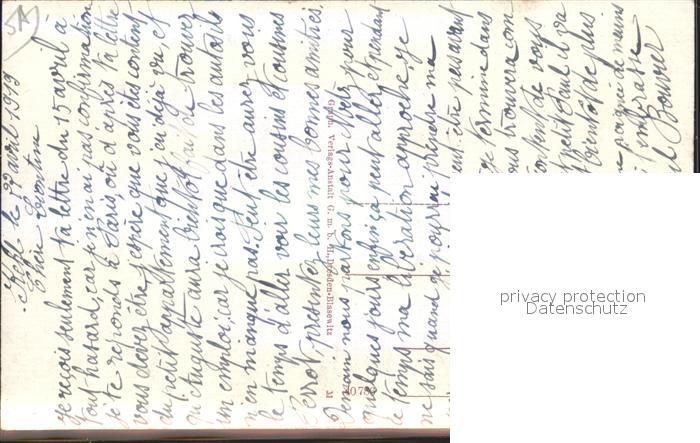 Kehl le 22 avril 1919
Chère Ernestine
Je reçois seulement ta lettre du 15 avril à
tout hasard, car je n'en ai pas confirmation
je te réponds à Paris, où d'après ta lettre
vous devez être, j'espère que vous êtes contents
du petit appartement que j'ai déjà vu, et
qu'Auguste aura bientôt fait de trouver
un emploi, car je crois que dans les autos ils
n'en manque pas. Peut être aurez vous
le temps d'aller voir les cousins et cousines
Perrot, présentez leurs mes bonnes amitiés.
Demain nous partons pour pour
quelques jours enfin ça peut aller, et pendant
ce temps ma libération approche, je
ne sais quand je pourrai prendre ma
peut être pas avant
je termine dans
vous trouvera
content de vous
petit Paul il va
bientôt de plus
poignée de mains
embrasse
Bouvier
Graph. Verlags-Anstalt G. m. b. H., Dresden-Blasewitz
M
privacy protection
Datenschutz